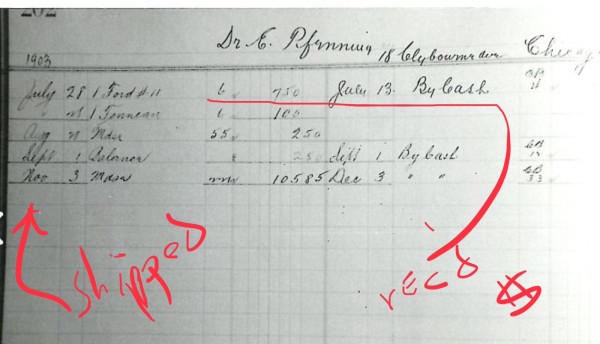 202
Dr. E. Pfennig 18 Clybourn ave Chicag
1903
July 28 1 Ford #11 6 750 July 13 By Cash CB 11
" " 1 Tonneau 6 100
Aug " Mdse 55 250
Sept 1 Balance 250 Sept 1 By Cash CB
Nov 3 Mdse 10585 Dec 3 " " CB 33
shipped
rec'd $